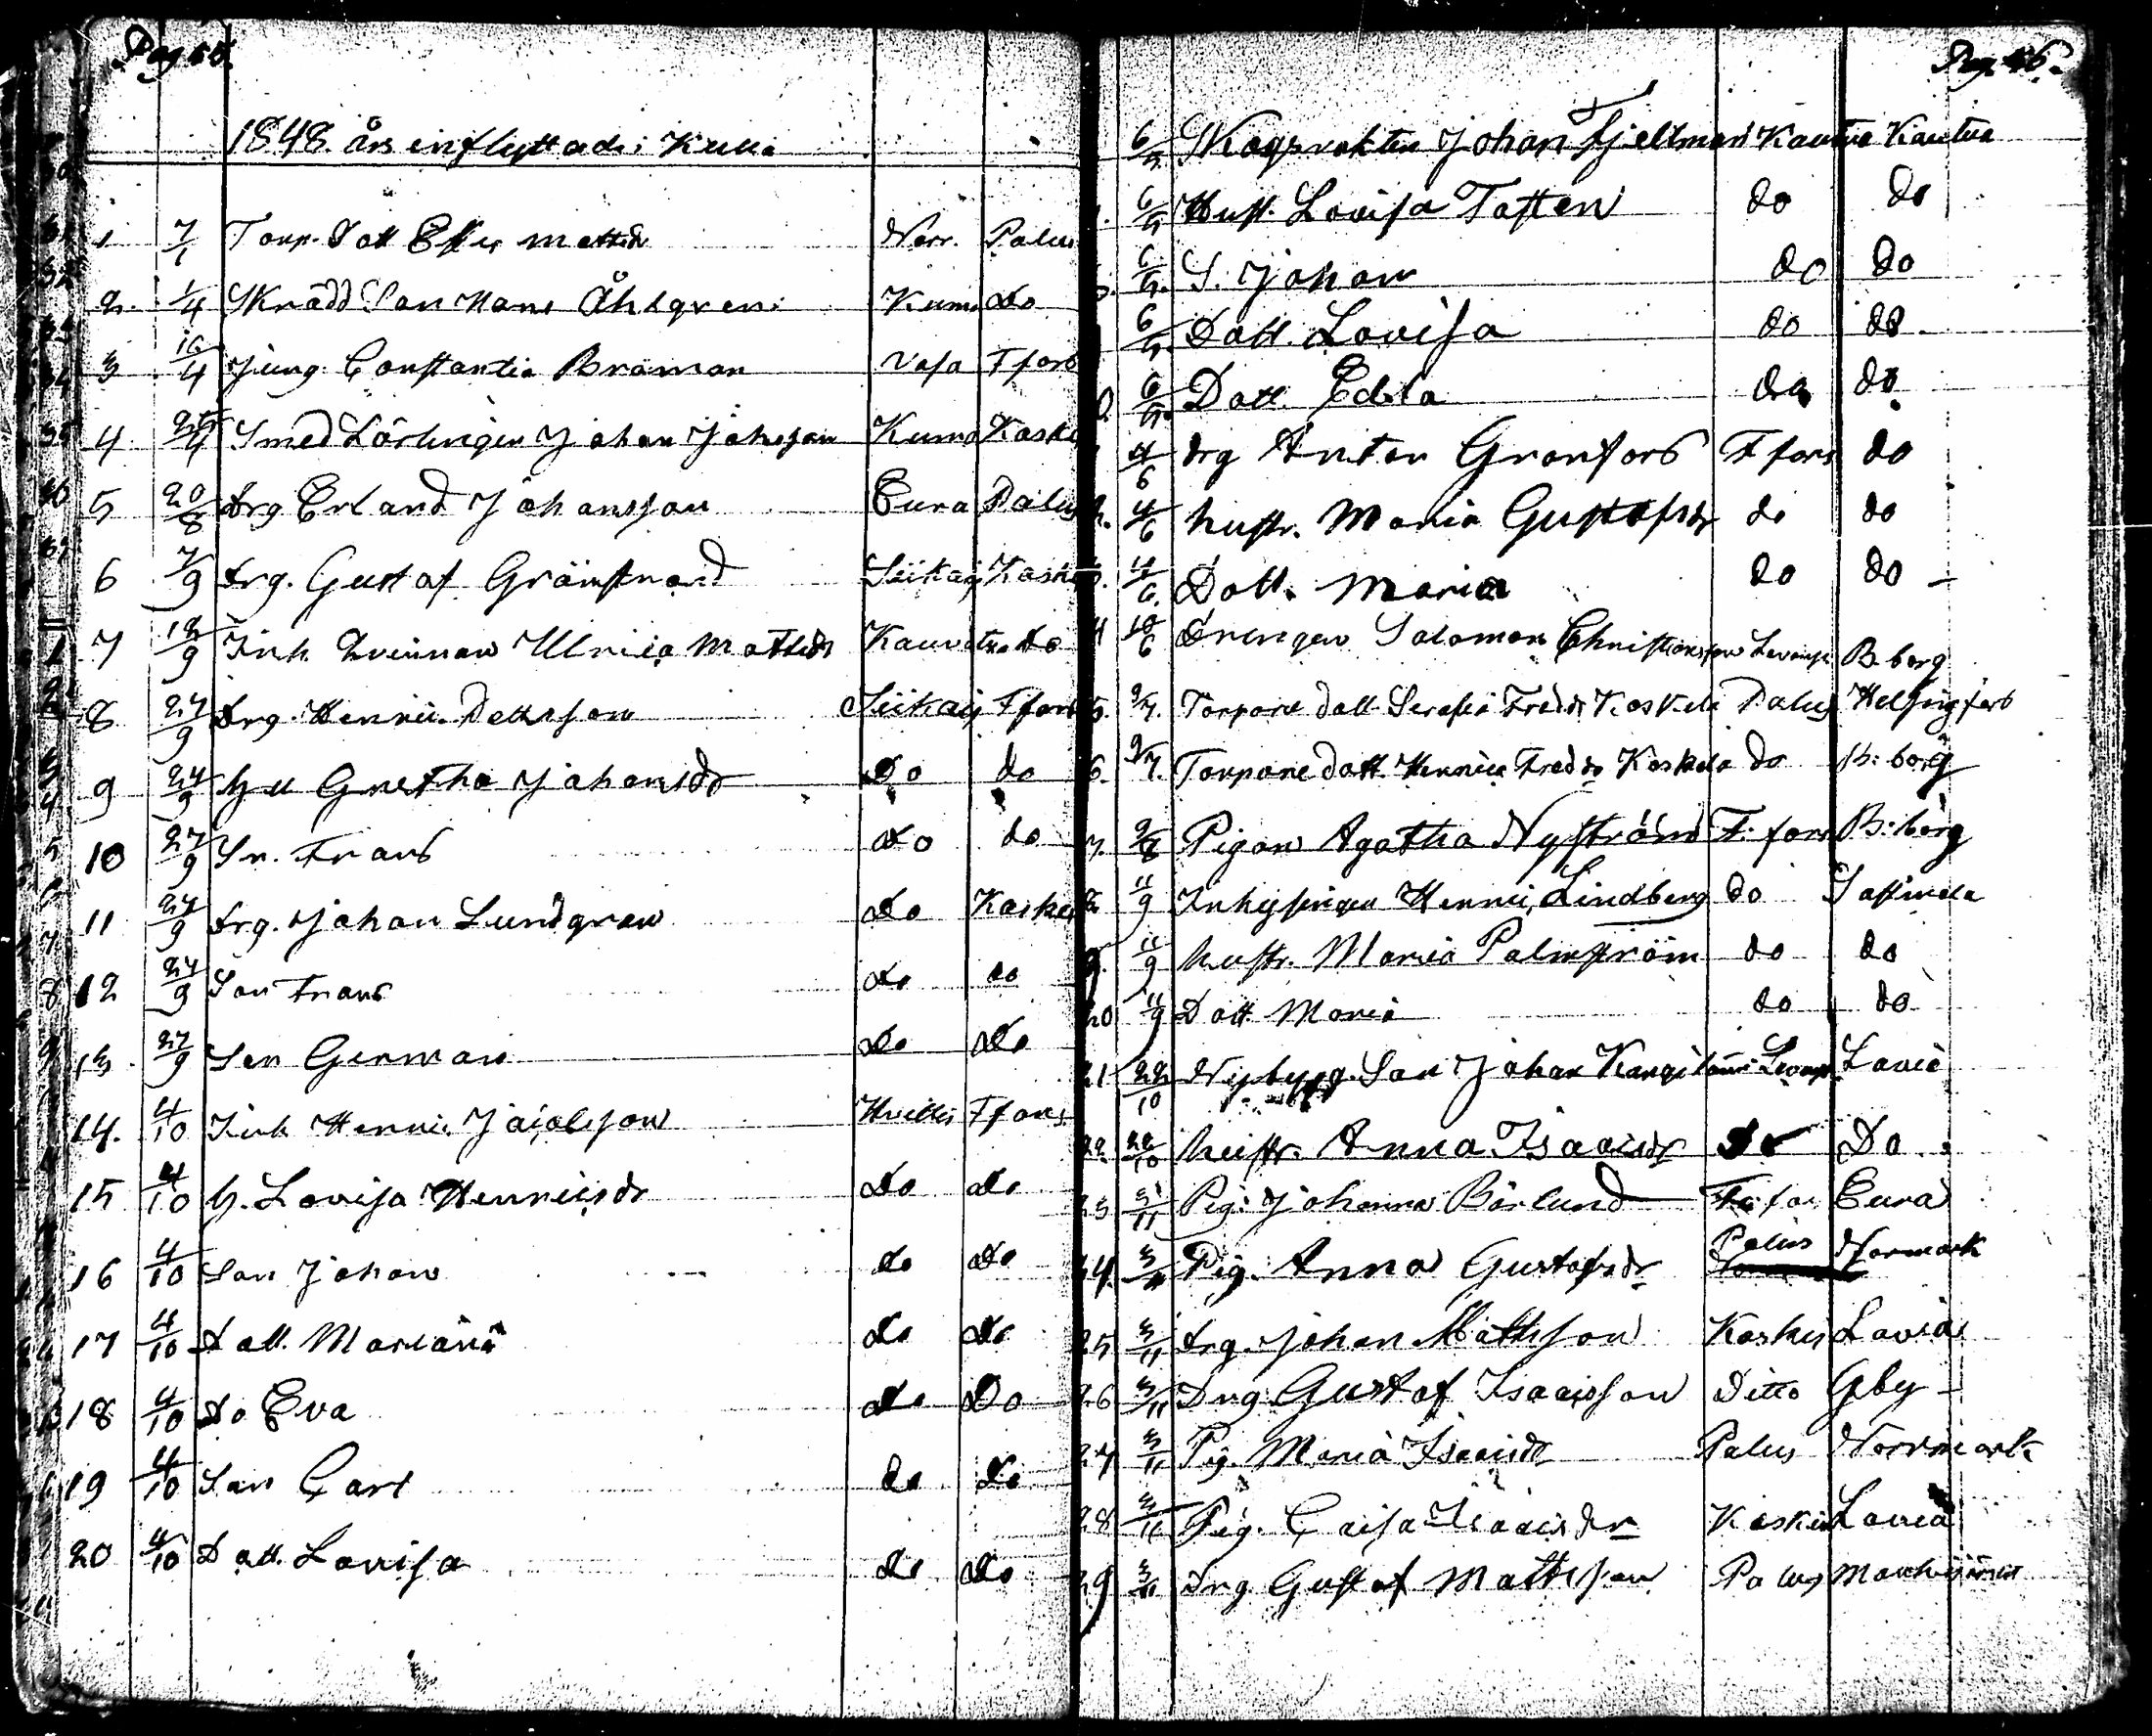 Pag 65.
1848 års inflyttade i Kulla
1 7/1 Torp. Dott Mattsdr Norr. Palus
2. 1/4 Skrädd Son Hans Åhlgren Kumo Do
3 16/4 Jung. Constantia Braman Vasa Ffors
4 25/4 Smed Lärlingen Johan Johansson Kumo Kaske
5 20/8 Drg Erland Johansson Eura Palus
6 7/9 Drg. Gustaf Grönstrand Siikaj Kaske
7 18/9 Inh. Qvinnan Ulrica Mattsdr Kauvatsa do
8 27/9 Drg. Henric Pettersson Siikaj Ffors
9 27/9 Hu Gretha Johansdr Do do
10 27/9 Sn. Frans Do do
11 27/9 Drg. Johan Lundgren Do Kaskes
12 27/9 Son Frans Do do
13 27/9 Son German Do Do
14. 4/10 Inh Henric Jacobsson Hvittis Ffors
15 4/10 H. Lovisa Henricsdr Do Do
16 4/10 Son Johan do Do
17 4/10 Dott. Mariana Do Do
18 4/10 Do Eva Do Do
19 4/10 Son Carl do Do
20 4/10 Dott. Lovisa Do Do
Pag. 66.
6/5 Skogvakten Johan Fjellman Kautua Kautua
6/5 Hust. Lovisa Tasten do do
6/5. S. Johan do do
6/5. Dott. Lovisa do do
6/5. Dott. Edla do do
4/6 Drg Anton Granfors Ffors do
4/6 hustr. Maria Gustafsdr do do
4/6. Dott. Maria do do
10/6 Drengen Salomon Christiansson B.borg
9/7. Torpare dott Serafia Fredr Koskela Palus Helsingfors
9/7. Torpare dott. Henrica Fredr Koskela do B:borg
9/8 Pigan Agatha Nyström F:fors B:borg
11/9 Inhysingen Henric Lindberg do Sastmola
9. 11/9 hustr. Maria Palmström do do
20 11/9 Dott Maria do do
21 22/10 Nybygg. Son Johan Lavia
22. 22/10 hustr. Anna Isacsdr Do Do
23 3/11 Pig. Johanna Bärlund F:for Eura
24. 3/11 Pig. Anna Gustafsdr Palus Norrmark
25 3/11 Drg. Johan Mattsson Kaskes Lavia
26 3/11 Drg Gustaf Isacsson Ditto Gby
27 3/11 Pig. Maria Isacsdr Palus Norrmark
28 3/11 Pig. Cajsa Isacsdr Kaskes Lavia
29 3/11 Drg Gustaf Mattsson Palus